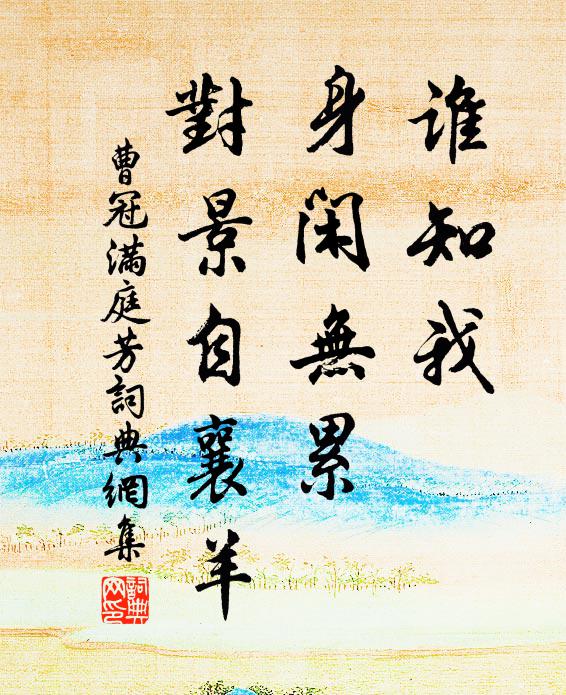 誰知我
身閑無累
對景自襄羊
曹冠滿庭芳詞典網集
詞典網印